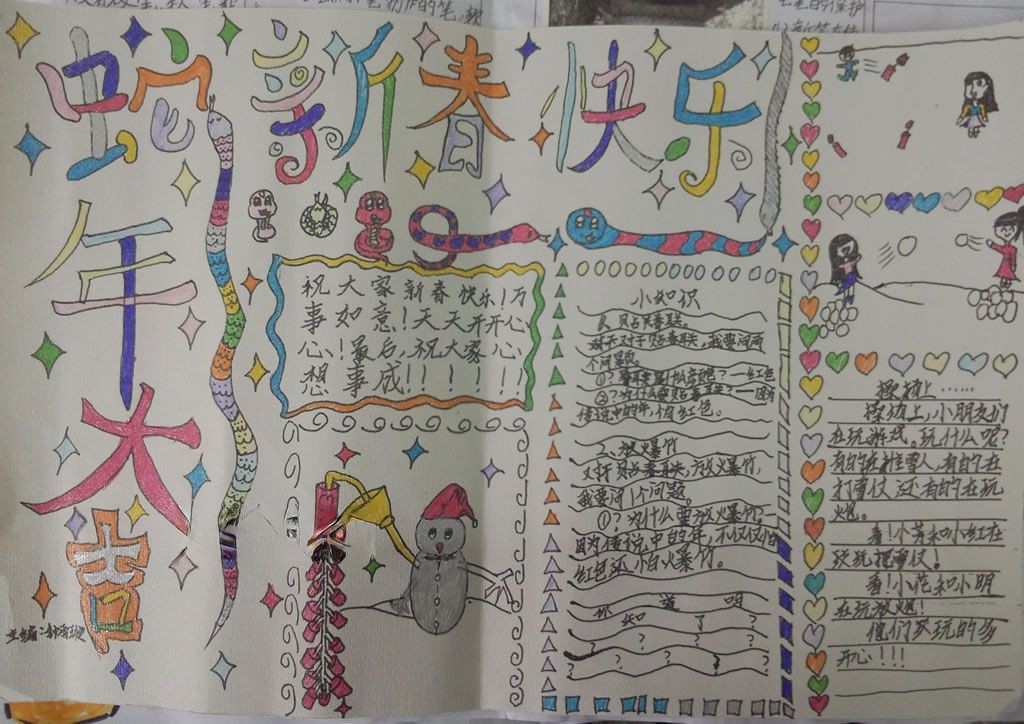 蛇 新春快乐
年大吉
祝大家新春快乐!万
事如意!天天开开心
心!最后,祝大家心
想事成!!!!!!
小知识
1、贴春联。
对于对于贴春联,我要问两
个问题
①?春联是什么颜色?——红色
②?为什么要贴春联?——因为
传说中的年,怕红色。
2、放爆竹
对于贴春联,放火暴竹,
我要问1个问题。
①?为什么要放火暴竹?
因为传说中的年,不仅仅怕
红色还怕火暴竹。
你 知 道 了 吗
? ? ? ? ?
操场上……
操场上,小朋友们
在玩游戏,玩什么呢?
有的在堆雪人,有的在
打雪仗还有的在玩
火包。
看!小芳和小红在
玩打雪仗!
看!小花和小明
在玩放火包!
他们玩的多
开心!!!
主编: